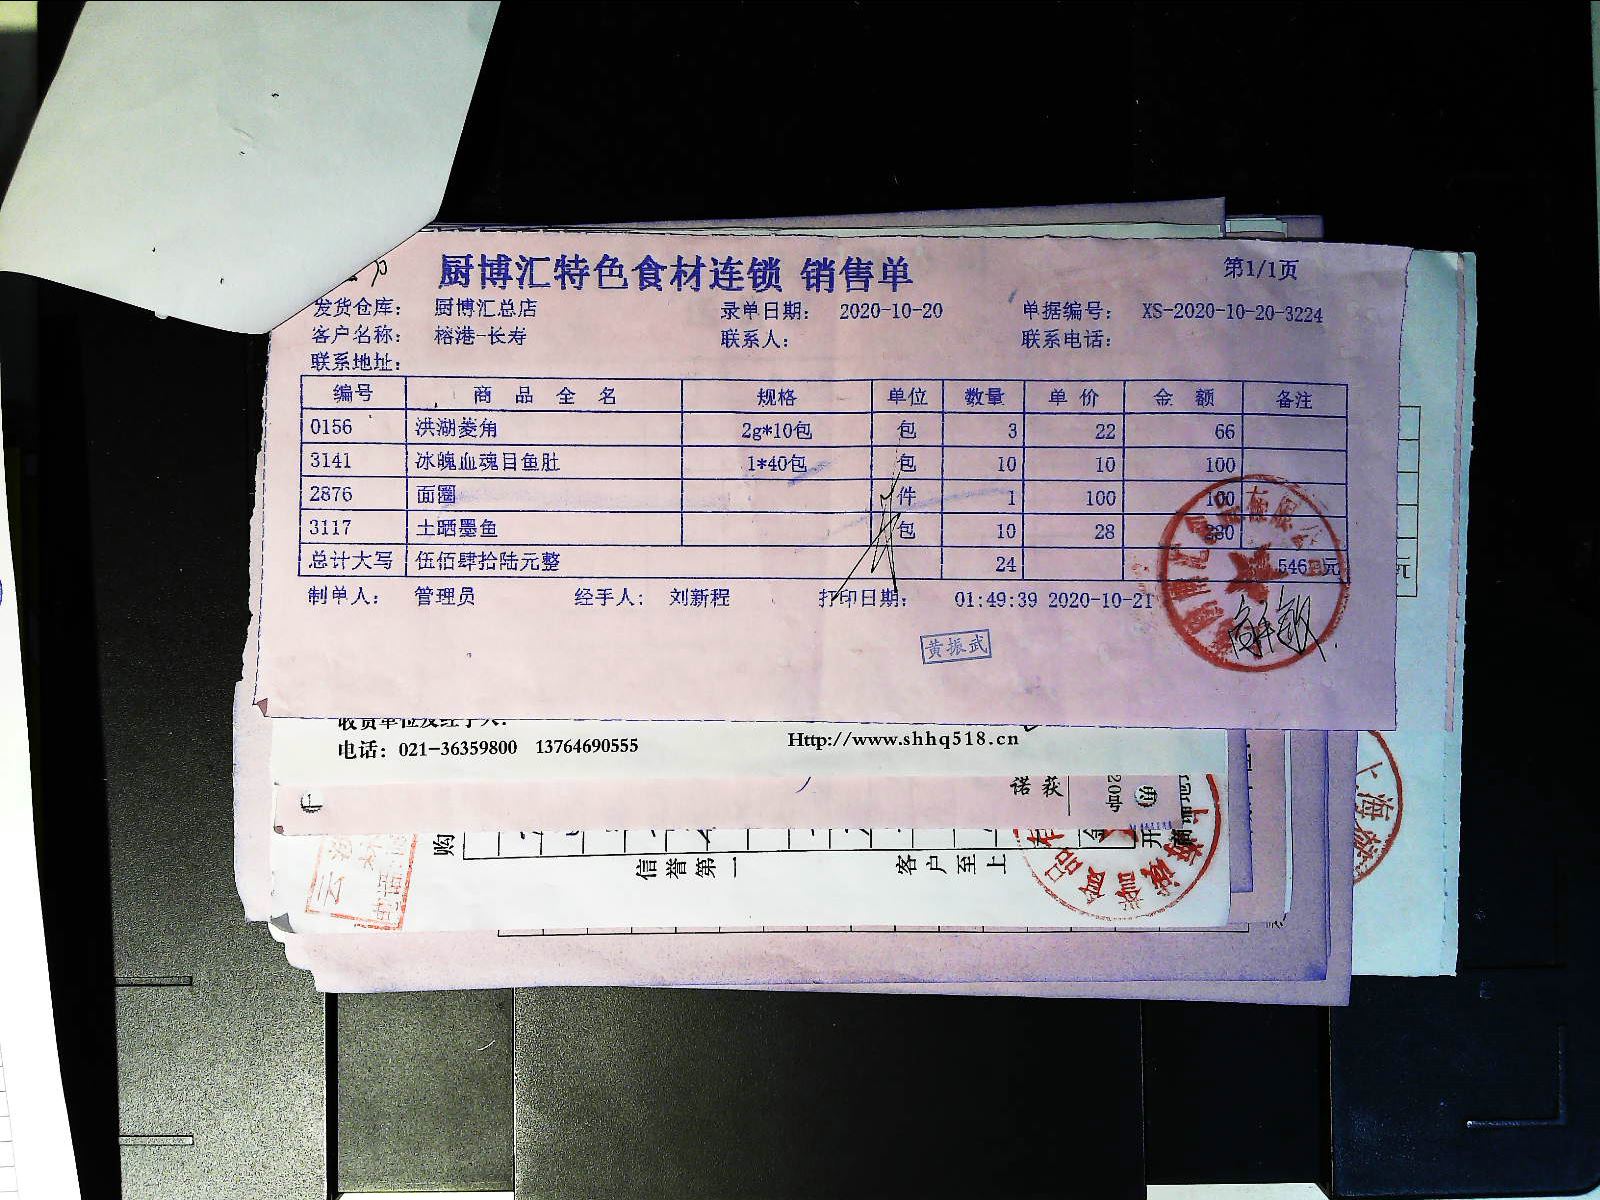 厨博汇特色食材连锁 销售单 第1/1页
发货仓库： 厨博汇总店 录单日期： 2020-10-20 单据编号： XS-2020-10-20-3224
客户名称： 榕港-长寿 联系人： 联系电话：
联系地址：
编号 商品全名 规格 单位 数量 单价 金额 备注
0156 洪湖菱角 2g*10包 包 3 22 66
3141 冰魄血魂目鱼肚 1*40包 包 10 10 100
2876 面圈 件 1 100 100
3117 土晒墨鱼 包 10 28 280
总计大写 伍佰肆拾陆元整 24 546 元
制单人： 管理员 经手人： 刘新程 打印日期： 01:49:39 2020-10-21
黄振武
收货单位及经手人：
电话：021-36359800 13764690555 Http://www.shhq518.cn
诺 获
购
信誉第一 客户至上
元
上海